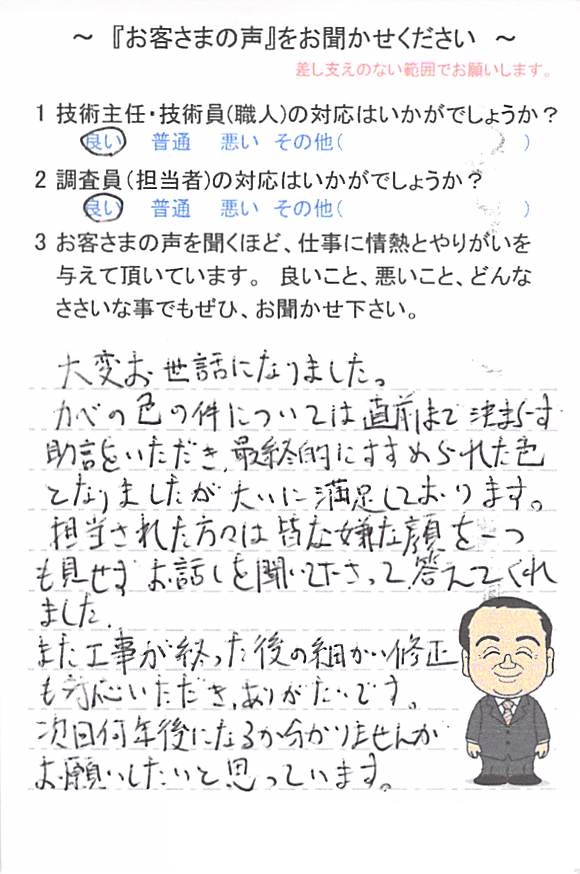 ～ 『お客さまの声』をお聞かせください ～
差し支えのない範囲でお願いします。
1 技術主任・技術員(職人)の対応はいかがでしょうか？
良い 普通 悪い その他( )
2 調査員(担当者)の対応はいかがでしょうか？
良い 普通 悪い その他( )
3 お客さまの声を聞くほど、仕事に情熱とやりがいを
与えて頂いています。 良いこと、悪いこと、どんな
ささいな事でもぜひ、お聞かせ下さい。
大変お世話になりました。
カベの色の件については直前まで決まらず
助言をいただき、最終的にすすめられた色
となりましたが大いに満足しております。
担当された方々は皆な嫌な顔を一つ
も見せず お話しを聞いて下さって、答えてくれ
ました。
また工事が終った後の細かい修正
も対応いただき、ありがたいです。
次回何年後になるか分かりませんが
お願いしたいと思っています。